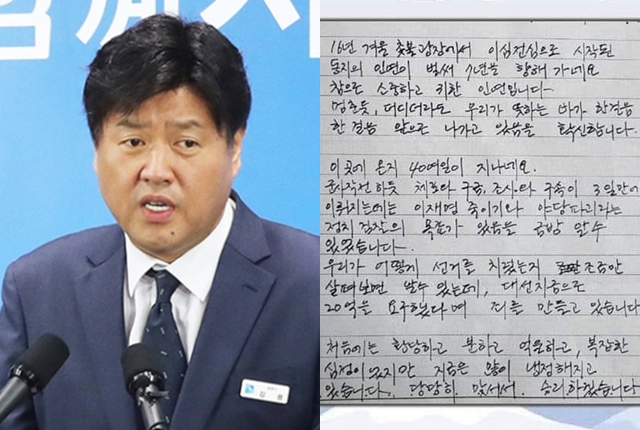 경제사
김용
16년 겨울 촛불광장에서 이심전심으로 시작된
동지의 인연이 벌써 7년을 향해 가네요
참으로 소중하고 귀한 인연입니다.
멈춘듯, 더디더라도 우리가 뜻하는 바가 한걸음
한걸음 앞으로 나가고 있음을 확신합니다.
이곳에 온지 40여일이 지나네요.
군사작전하듯 체포와 구속, 조사와 구속이 3일만에
이뤄지는데는 이재명 죽이기와 야당파괴라는
정치검찰의 목표가 있음을 금방 알 수
있었습니다.
우리가 어떻게 선거를 치렀는지 조금만
살펴보면 알수 있는데, 대선자금으로
20억을 요구했다며 죄를 만들고 있습니다
처음에는 황당하고 분하고 억울하고, 복잡한
심정이었지만 지금은 많이 냉정해지고
있습니다. 당당히 맞서서 승리하겠습니다